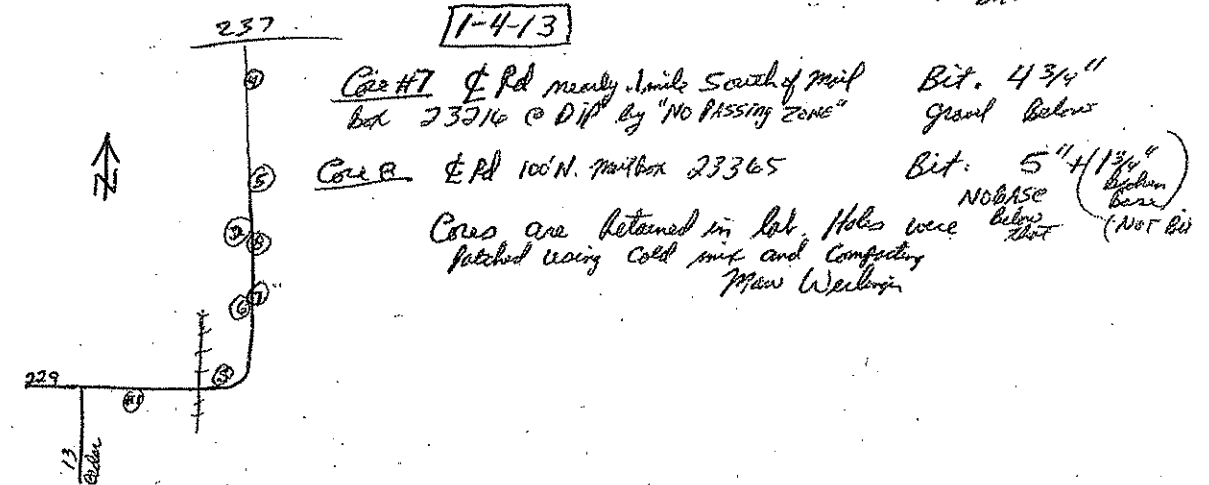 237
1-4-13
Core #7 ℄ Rd nearly .1 mile South of Mail Bit. 4 3/4"
Box 23216 @ Dip by "NO PASSING ZONE" gravel Below
N
Core 8 ℄ Rd 100' N. Mailbox 23365 Bit. 5" + (1 3/4" Broken Base)
NO BASE Below that (NOT Bit
Cores are Retained in lab. Holes were
patched using Cold mix and Compacting
4
5
2
8
6
7
3
229
#1
13
Cedar